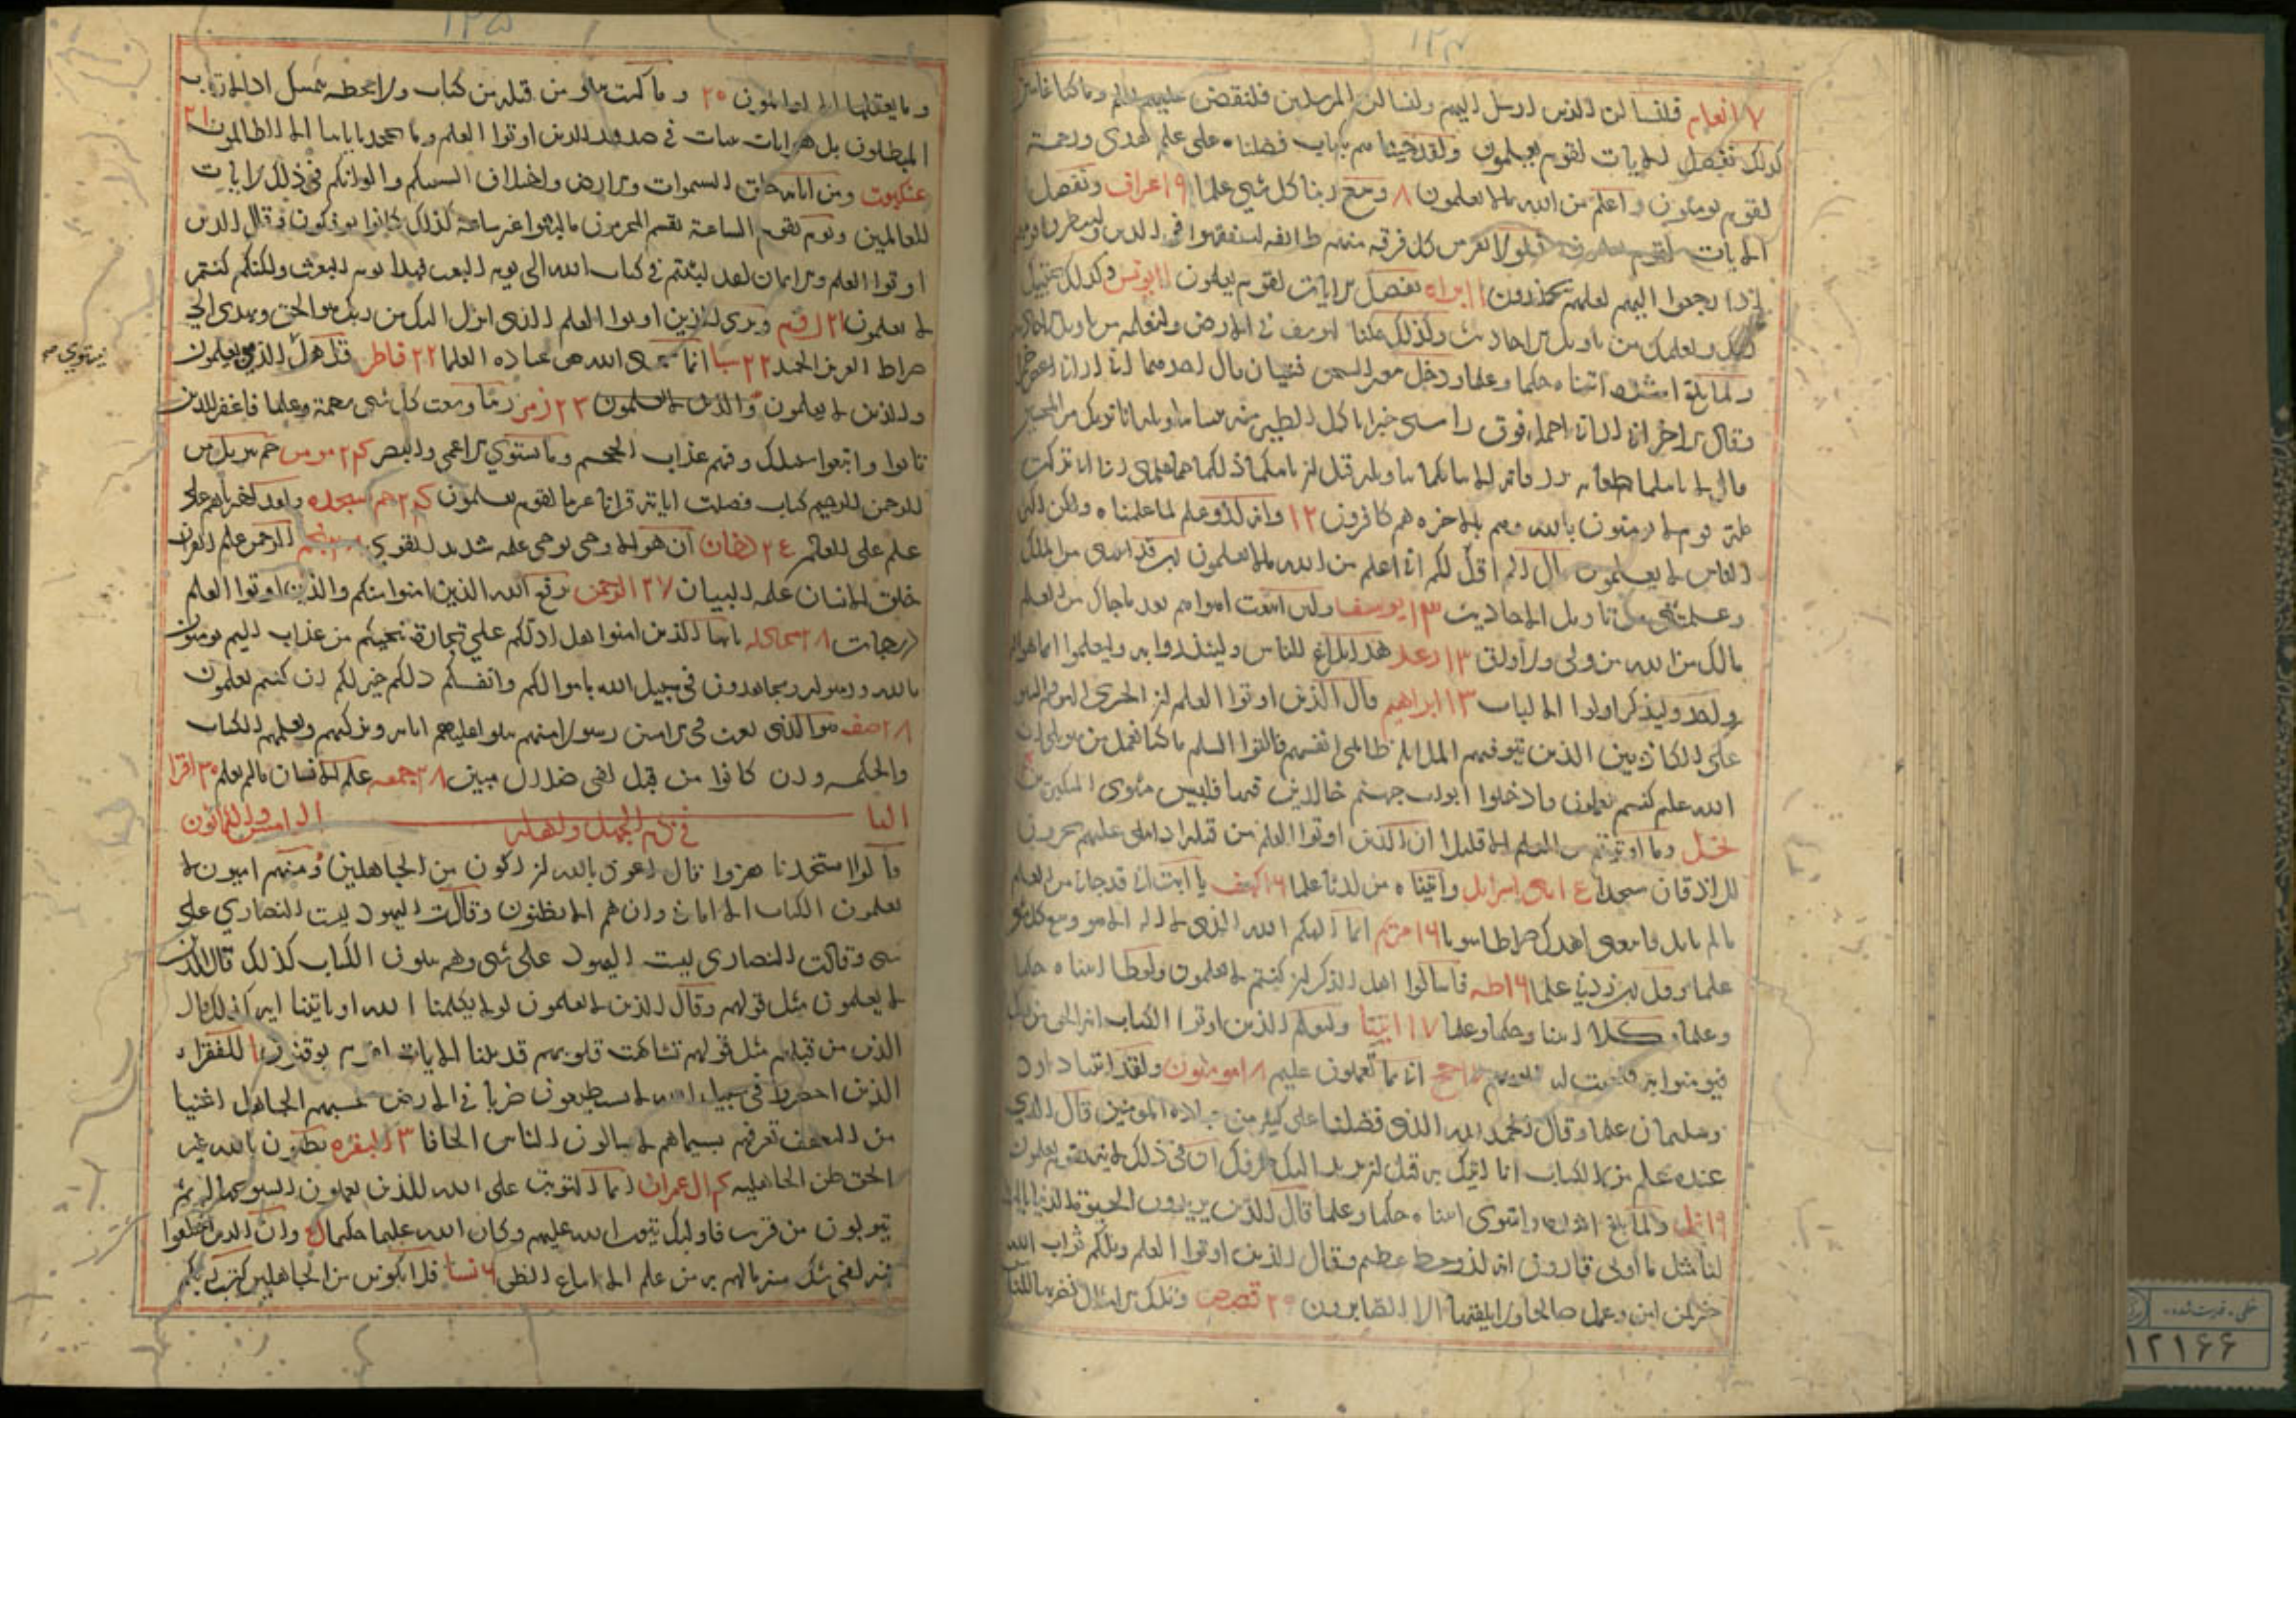 ١٢٤
٧ انعام فلنسالن الذين ارسل اليهم ولنسالن المرسلين فلنقصن عليهم بعلم وما كنا غائبين
كذلك نفصل الايات لقوم يعلمون ولقد جئناهم بكتاب فصلناه على علم هدى ورحمة
لقوم يومنون واعلم من الله ما لا تعلمون ٨ وسع ربنا كل شي علما ٩ اعراف ونفصل
الايات لقوم يعلمون فلولا نفر من كل فرقه منهم طائفه ليتفقهوا في الدين ولينذروا قومهم
اذا رجعوا اليهم لعلهم يحذرون ١١ براه نفصل الايات لقوم يعلمون ١١ يونس وكذلك يجتبيك
ربك ويعلمك من تاويل الاحاديث وكذلك مكنا ليوسف في الارض ولنعلمه من تاويل الاحاديث
ولما بلغ اشده اتيناه حكما وعلما ودخل معه السجن فتيان قال احدهما اني اراني اعصر خمرا
وقال الاخر اني اراني احمل فوق راسي خبزا تاكل الطير منه نبئنا بتاويله انا نريك من المحسنين
قال لا ياتيكما طعام ترزقانه الا نباتكما بتاويله قبل ان ياتيكما ذلكما مما علمني ربي اني تركت
ملة قوم لا يومنون بالله وهم بالاخره هم كافرون ١٢ وانه لذو علم لما علمناه ولكن اكثر
الناس لا يعلمون قال الم اقل لكم اني اعلم من الله ما لا تعلمون رب قد اتيتني من الملك
وعلمتني من تاويل الاحاديث ١٣ يوسف ولئن اتبعت اهواهم بعد ما جاك من العلم
مالك من الله من ولي ولا واق ١٣ رعد هذا بلاغ للناس ولينذروا به وليعلموا انما هو اله
واحد وليذكر اولوا الالباب ١٣ ابراهيم قال الذين اوتوا العلم ان الخزي اليوم والسو
على الكافرين الذين تتوفيهم الملائكة ظالمي انفسهم فالقوا السلم ما كنا نعمل من سو بلى ان
الله عليم كنتم تعملون فادخلوا ابواب جهنم خالدين فيها فلبيس مثوى المتكبرين
نحل وما اوتيتم من العلم الا قليلا ان الذين اوتوا العلم من قبله اذا يتلى عليهم يخرون
للاذقان سجدا بني اسرايل واتيناه من لدنا علما ١٦ كهف يا ابت اني قد جاني من العلم
ما لم ياتك فاتبعني اهدك صراطا سويا ١٦ مريم انما الهكم الله الذي لا اله الا هو وسع كل شي
علما وقل رب زدني علما ١٦ طه فاسالوا اهل الذكر ان كنتم لا تعلمون ولوطا اتيناه حكما
وعلما وكلا اتينا وحكما وعلما ١٧ انبيا وليعلم الذين اوتوا الكتاب انه الحق من ربك
فيومنوا به فتخبت له قلوبهم حج اني بما تعملون عليم ١٨ مومنون ولقد اتينا داود
وسليمان علما وقال الحمد لله الذي فضلنا على كثير من عباده المومنين قال الذي
عنده علم من الكتاب انا اتيك به قبل ان يرتد اليك طرفك ان في ذلك لاية لقوم يعلمون
١٩ نمل ولما بلغ اشده واستوى اتيناه حكما وعلما قال الذين يريدون الحيوة الدنيا ياليت
لنا مثل ما اوتي قارون انه لذو حظ عظيم وقال الذين اوتوا العلم ويلكم ثواب الله
خير لمن امن وعمل صالحا ولا يلقيها الا الصابرون ٢٠ قصص وتلك الامثال نضربها للناس
١٢٥
وما يعقلها الا العالمون ٢٠ وما كنت تتلو من قبله من كتاب ولا تخطه بيمينك اذا لارتاب
المبطلون بل هو ايات بينات في صدور الذين اوتوا العلم وما يجحد باياتنا الا الظالمون ٢١
عنكبوت ومن اياته خلق السموات والارض واختلاف السنتكم والوانكم في ذلك لايات
للعالمين ويوم تقوم الساعة يقسم المجرمون ما لبثوا غير ساعة كذلك كانوا يوفكون وقال الذين
اوتوا العلم والايمان لقد لبثتم في كتاب الله الى يوم البعث فهذا يوم البعث ولكنكم كنتم
لا تعلمون ٢١ روم ويرى الذين اوتوا العلم الذي انزل اليك من ربك هو الحق ويهدي الى
صراط العزيز الحميد ٢٢ سبا انما يخشى الله من عباده العلما ٢٢ فاطر قل هل الذين يعلمون
يستوي صح
والذين لا يعلمون والذين لا يعلمون ٢٣ زمر ربنا وسعت كل شي رحمة وعلما فاغفر للذين
تابوا واتبعوا سبيلك وقهم عذاب الجحيم وما يستوي الاعمى والبصير ٢٤ مومن حم تنزيل من
الرحمن الرحيم كتاب فصلت اياته قرانا عربيا لقوم يعلمون ٢٤ حم سجده ولقد اخترناهم على
علم على العالمين ٢٤ دخان ان هو الا وحي يوحى علمه شديد القوي نجم الرحمن علم القران
خلق الانسان علمه البيان ٢٧ الرحمن يرفع الله الذين امنوا منكم والذين اوتوا العلم
درجات ٢٨ مجادله يا ايها الذين امنوا هل ادلكم على تجارة تنجيكم من عذاب اليم تومنون
بالله ورسوله وتجاهدون في سبيل الله باموالكم وانفسكم ذلكم خير لكم ان كنتم تعلمون
٢٨ صف هو الذي بعث في الاميين رسولا منهم يتلوا عليهم اياته ويزكيهم ويعلمهم الكتاب
والحكمه وان كانوا من قبل لفي ضلال مبين ٢٨ جمعه علم الانسان ما لم يعلم ٣٠ اقرا
الباب الخامس والثمانون في ذم الجهل واهله
قالوا اتتخذنا هزوا قال اعوذ بالله ان اكون من الجاهلين ومنهم اميون لا
يعلمون الكتاب الا اماني وان هم الا يظنون وقالت اليهود ليست النصاري على
شي وقالت النصاري ليست اليهود على شي وهم يتلون الكتاب كذلك قال الذين
لا يعلمون مثل قولهم وقال الذين لا يعلمون لولا يكلمنا الله او تاتينا اية كذلك قال
الذين من قبلهم مثل قولهم تشابهت قلوبهم قد بينا الايات لقوم يوقنون للفقراء
الذين احصروا في سبيل الله لا يستطيعون ضربا في الارض يحسبهم الجاهل اغنيا
من التعفف تعرفهم بسيماهم لا يسالون الناس الحافا ٣ البقره يظنون بالله غير
الحق ظن الجاهليه ٤ ال عمران انما التوبة على الله للذين يعملون السو بجهالة ثم
يتوبون من قريب فاوليك يتوب الله عليهم وكان الله عليما حكيما وان الذين اختلفوا
فيه لفي شك منه ما لهم به من علم الا اتباع الظن ٦ نسا فلا تكونن من الجاهلين كتب ربكم
خطی - فهرست شده
١٢١٦٦